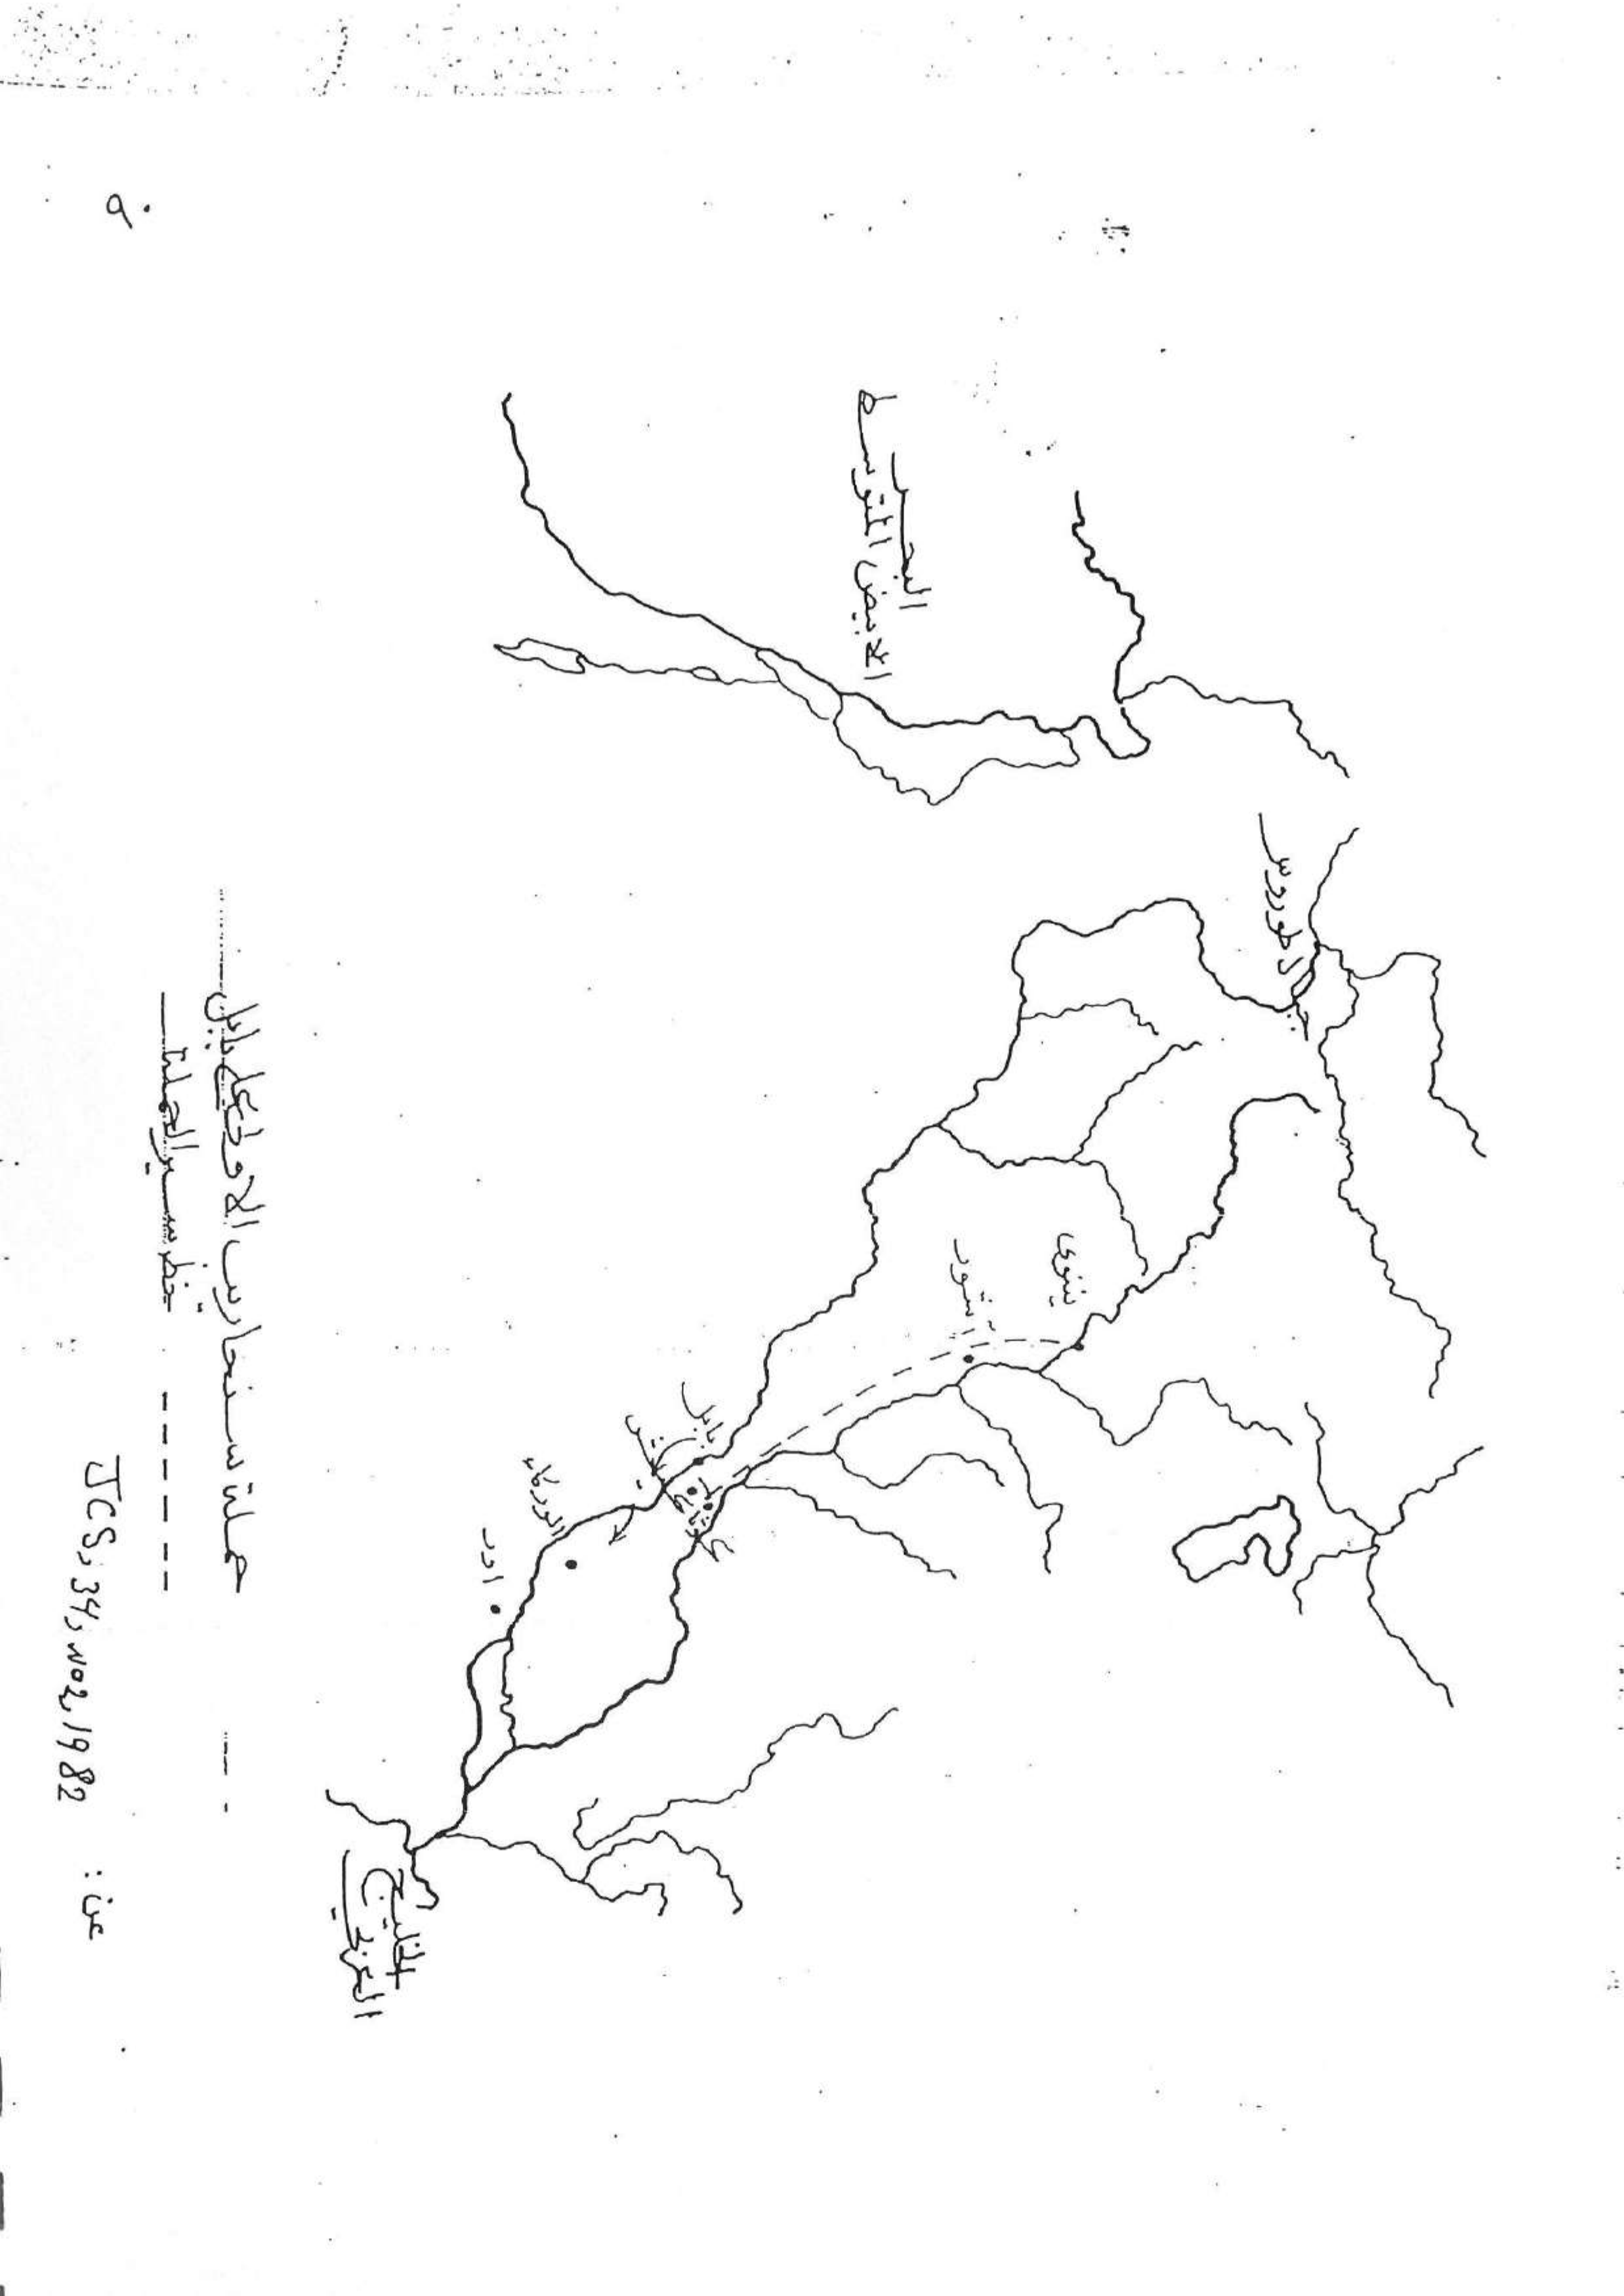 ٩٠
البحر
الابيض المتوسط
طوروس
نينوى
آشور
بابل
الوركاء
اور
الخليج
العربي
حملة سنحاريب الاولى على بابل
خط سير الحملة
عن : JCS, 34, NO2, 1982